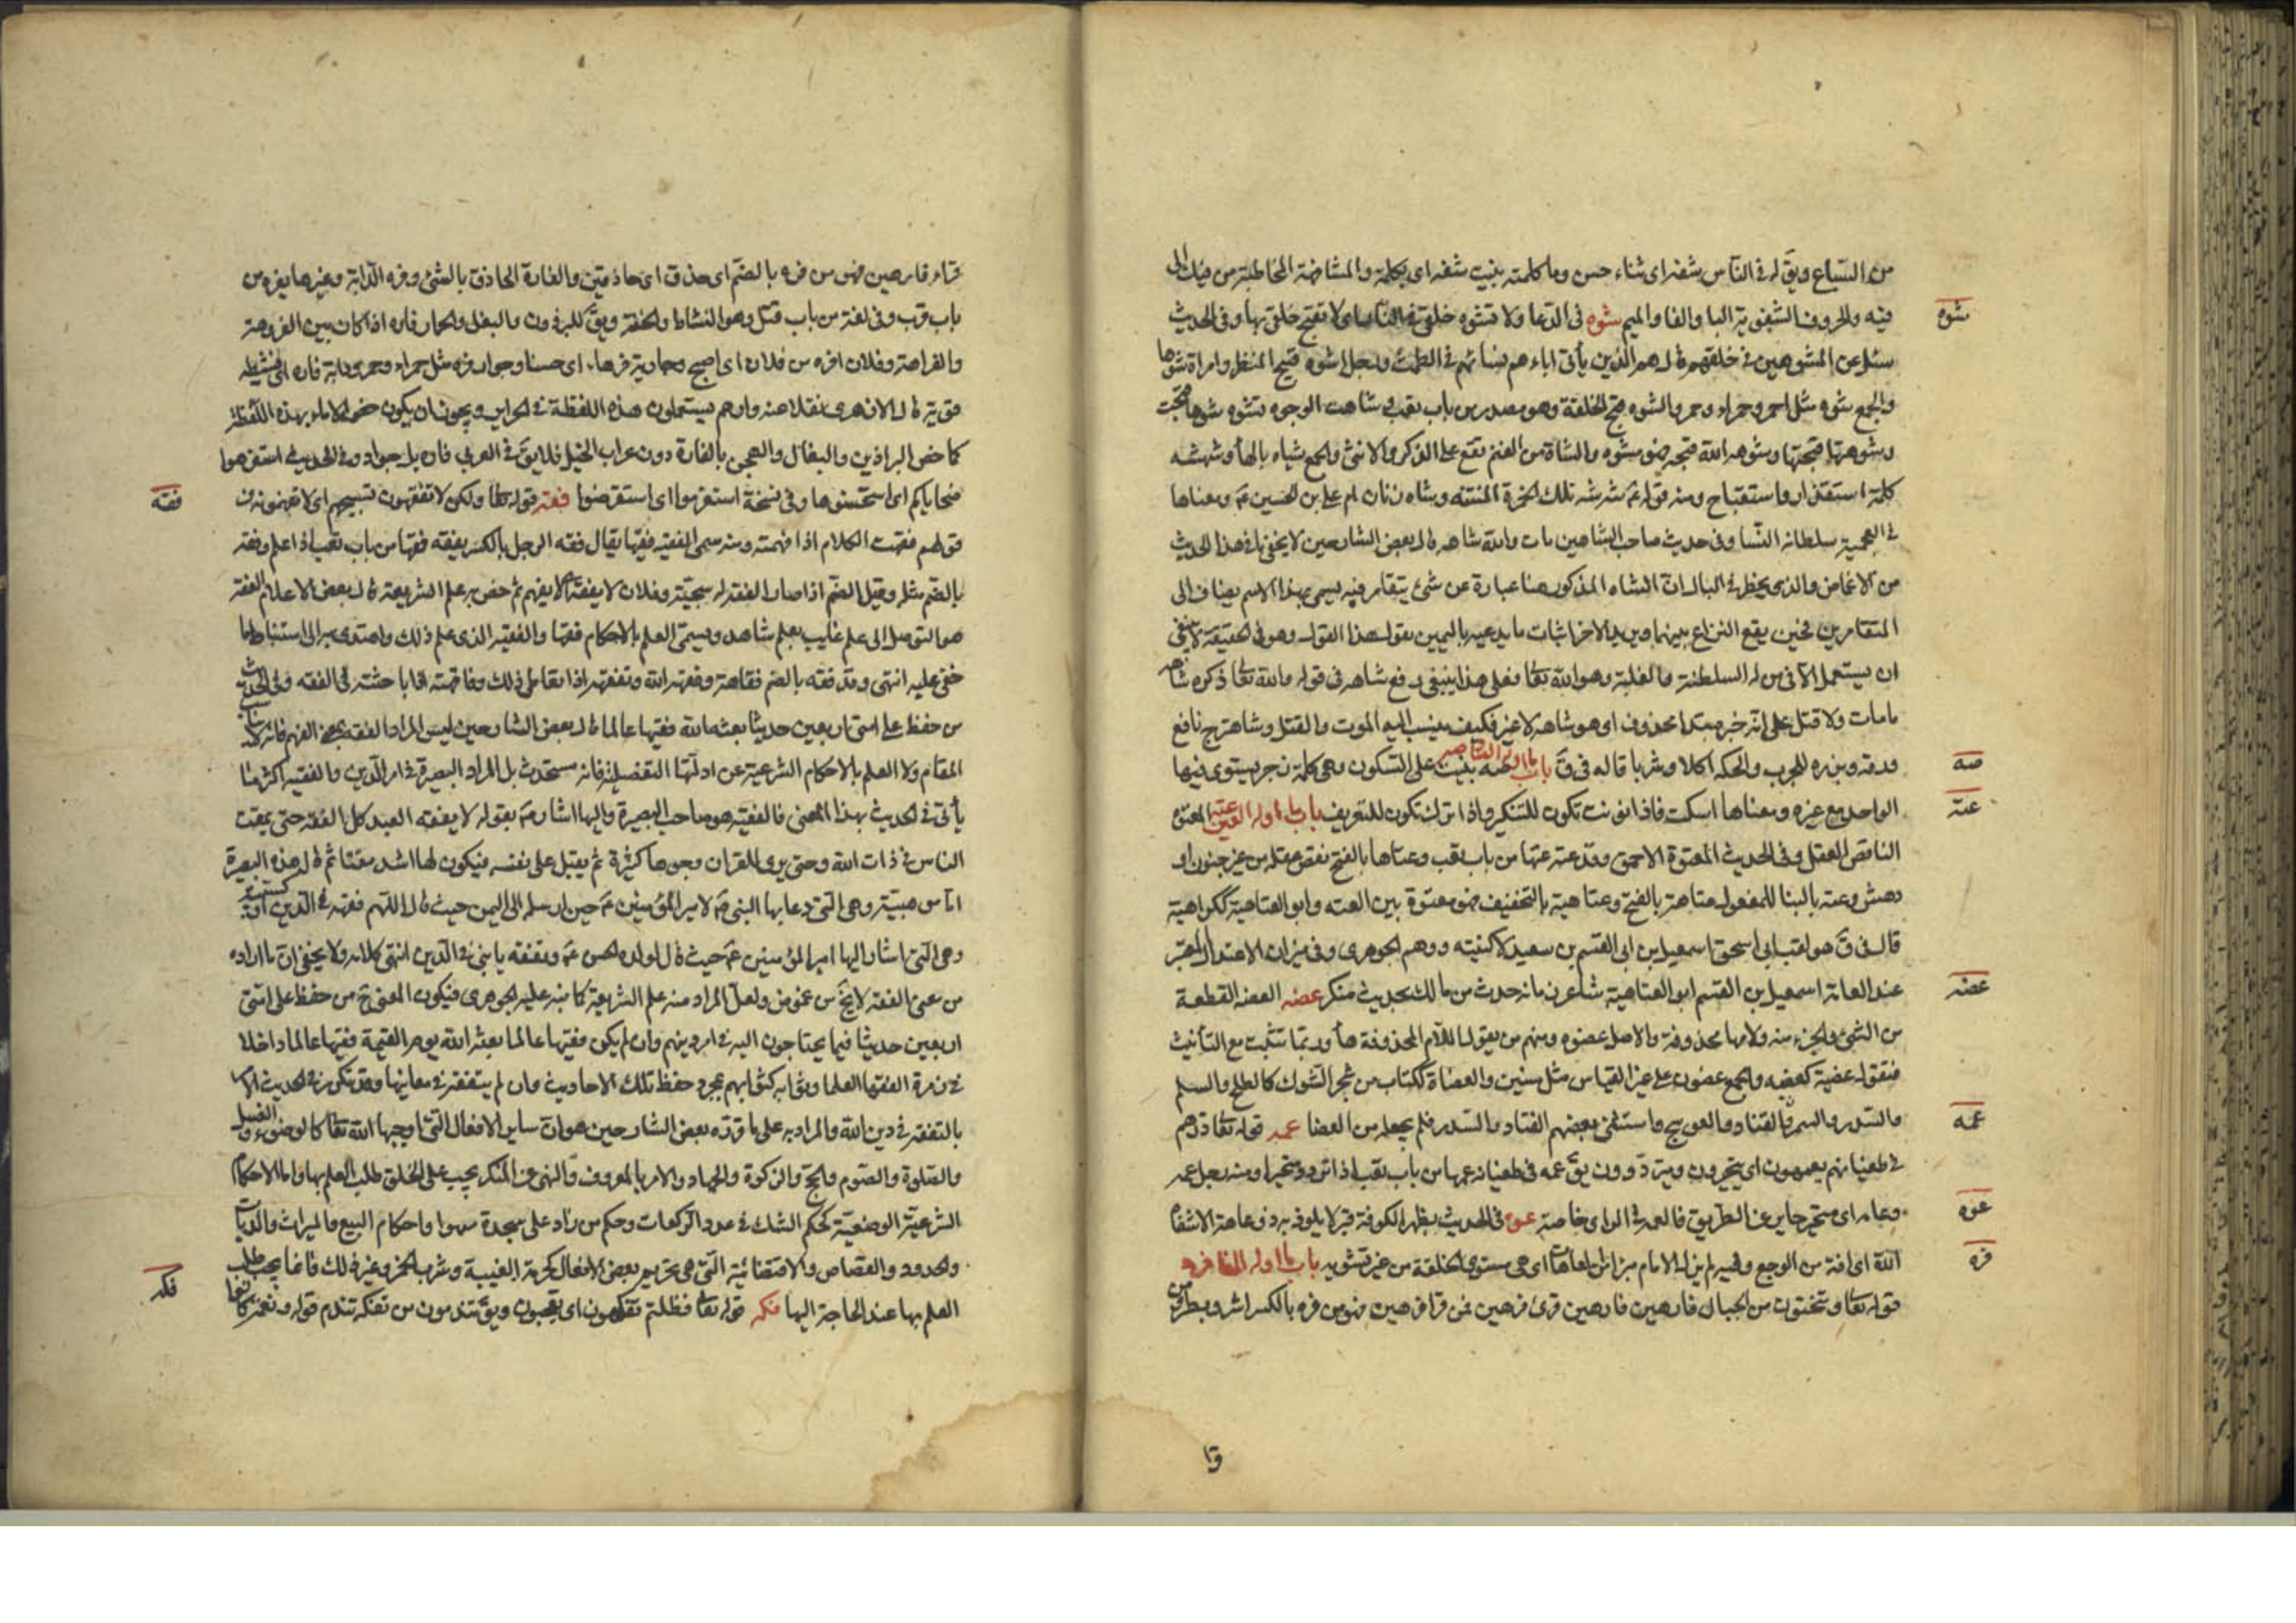 من السباع ويقَ له في الناس شفة اى ثناء حسن وما كلمته ببنت شفه اى بكلمة والمشافهة المخاطبة من فيك الى
فيه والحروف الشفوية البا والفا والميم شوه في الدعا ولا تشوه خلقي في النار اى لا تقبح خلقي بها وفي الحديث
سئل عن المشوهين في خلقهم قال هم الذين يأتي اباءهم نساءهم في الطمث ورجل اشوه قبيح المنظر وامراة شوها
والجمع شوه مثل احمر وحمراء وحمر والشوه قبح الخلقة وهو مصدر من باب تعب وشاهت الوجوه تشوه شوها قبحت
وشوهتها قبحتها وشوهه الله قبحه فهو مشوه والشاة من الغنم تقع على الذكر والانثى والجمع شياه بالهاء وشه شه
كلمة استقذار واستقباح ومنه قوله عَ شه شه تلك الخمرة المنتنه وشاه زنان ام علي بن الحسين عَ ومعناها
في العجمية سلطانة النسا وفي حديث صاحب الشاهين مات والله شاهه قال بعض الشارحين لا يخفى ما في هذا الحديث
من الاغماض والذي يخطر في البال ان الشاه المذكور هنا عبارة عن شئ يتقامر فيه يسمى بهذا الاسم يضاف الى
المتقامرين فحين يقع النزاع بينهما ويريد الاخر اثبات ما يدعيه باليمين يقول هذا القول وهو في الحقيقة لا ينبغي
ان يستعمل الا في من له السلطنة والغلبة وهو الله تعا فعلى هذا ينبغي رفع شاهه في قوله والله تعا ذكره شاهه
ما مات ولا قتل على انه خبر مبتدا محذوف اى هو شاهه لا غير فكيف ينسب اليه الموت والقتل وشاهترج نافع
ورقه وبزره للجرب والحكه اكلا وشربا قاله في قَ باب ما اوله الصاد صه بنيت على السكون وهى كلمة زجر يستوى فيها
الواحد مع غيره ومعناها اسكت فاذا نونت تكون للتنكير واذا تركت تكون للتعريف باب ما اوله العين عته المعتوه
الناقص العقل وفي الحديث المعتوة الاحمق وقد عته عتها من باب تعب وعتاها بالفتح نقص عقله من غير جنون او
دهش وعته بالبنا للمفعول عتاهة بالفتح وعتاهية بالتخفيف فهو معتوة بين العته وابو العتاهية ككراهية
قال في قَ هو لقب ابي اسحق اسمعيل بن ابي القسم بن سعيد لا كنيته ووهم الجوهرى وفي ميزان الاعتدال المعتبر
عند العامة اسمعيل بن القسم ابو العتاهية شاعر زمانه حدث من مالك بحديث منكر عضه العضه القطعة
من الشئ والجزء منه ولامها محذوفة والاصل عضوه ومنهم من يقول اللام المحذوفة هاء وربما تثبت مع التأنيث
فتقول عضهة كعضه والجمع عضون على غير القياس مثل سنين والعضاة ككتاب من شجر الشوك كالطلح والسلم
والسدر والسمر والقتاد والعوسج واستثنى بعضهم القتاد والسدر فلم يجعله من العضا عمه قوله تعا ذرهم
في طغيانهم يعمهون اى يتحيرون ويترددون يقَ عمه في طغيانه عمها من باب تعب اذا تردد متحيرا ومنه رجل عمه
وعامه اى متحير جاير عن الطريق فالعمه في الراى خاصة عوه في الحديث بظهر الكوفة قبر لا يلوذ به ذو عاهة الا شفاه
الله اى افة من الوجع وفيه لم يزل الامام مبرا من العاهات اى هى مستوى الخلقة من غير تشويه باب ما اوله الفا فره
قوله تعا وتنحتون من الجبال فارهين فارهين قرئ فرهين فمن قرا فرهين فهو من فره بالكسر اشر وبطر ومن
شوه
صه
عته
عضه
عمه
عوه
فره
قرأ فارهين فهو من فره بالضم اى حذق اى حاذقين والفارة الحاذق بالشئ وفره الدابة وغيرها يفره من
باب قرب وفي لغة من باب قتل وهو النشاط والخفة ويقَ للبرذون والبغل والحمار فاره اذا كان بين الفروهة
والفراهة وفلان افره من فلان اى اصبح وجارية فرهاء اى حسنا وجوار فره مثل حمراء وحمر ودابة فاره اى نشيطه
قوية قال الازهرى نقلا عنه وارهم يستعملون هذه اللفظة في الحراير ويجوز ان يكون خص الاماء بهذه اللفظة
كما خص البراذين والبغال والهجن بالفارة دون عراب الخيل فلا يقَ في العربي فاره بل جواد وفي الحديث استفرهوا
ضحاياكم اى استحسنوها وفي نسخة استفرموا اى استقرضوا فقه قوله تعا ولكن لا تفقهون تسبيحهم اى لا تفهمونه من
قولهم فقهت الكلام اذا فهمته ومنه سمى الفقيه فقيها يقال فقه الرجل بالكسر يفقه فقها من باب تعب اذا علم وفقه
بالضم مثله وقيل الضم اذا صار الفقه له سجية وفلان لا يفقه اى لا يفهم ثم خص به علم الشريعة قال بعض الاعلام الفقه
هو التوصل الى علم غايب بعلم شاهد ويسمى العلم بالاحكام فقها والفقيه الذي علم ذلك واهتدى به الى استنباط ما
خفى عليه انتهى وقد فقه بالضم فقاهة وفقهه الله وتفقه اذا تعاطى ذلك وفاقهته اذا باحثته في الفقه وفي الحديث
من حفظ على امتى اربعين حديثا بعثه الله فقيها عالما قال بعض الشارحين ليس المراد الفقه بمعنى الفهم فانه لا يناسب
المقام ولا العلم بالاحكام الشرعية عن ادلتها التفصيلية فانه مستحدث بل المراد البصيرة في امر الدين والفقيه اكثر ما
يأتي في الحديث بهذا المعنى فالفقيه هو صاحب البصيرة واليها اشار صَ بقوله لا يفقه العبد كل الفقه حتى يمقت
الناس في ذات الله وحتى يرى للقران وجوها كثيرة ثم يقبل على نفسه فيكون لها اشد مقتا ثم قال هذه البصيرة
اما موهبية وهى التي دعا بها النبي صَ لامير المؤمنين عَ حين ارسله الى اليمن حيث قال اللهم فقهه في الدين او كسبية
وهى التي اشار اليها امير المؤمنين عَ حيث قال لولده الحسن عَ وتفقه يا بني في الدين انتهى كلامه ولا يخفى ان ما اراده
من معنى الفقه لا يخَ من غموض ولعل المراد منه علم الشريعة كما نبه عليه الجوهرى فيكون المعنى حَ من حفظ على امتى
اربعين حديثا فيما يحتاجون اليه في امر دينهم وان لم يكن فقيها عالما بعثه الله يوم القيمة فقيها عالما داخلا
في زمرة الفقها العلما وثوابه كثوابهم بمجرد حفظ تلك الاحاديث وان لم يتفقه في معانيها وقد تكرر في الحديث الامر
بالتفقه في دين الله والمراد به على ما قرره بعض الشارحين هو ان ساير الافعال التي اوجبها الله تعا كالوضوء والغسل
والصلوة والصوم والحج والزكوة والجهاد والامر بالمعروف والنهى عن المنكر يجب على الخلق طلب العلم بها واما الاحكام
الشرعية الوضعية كحكم الشك في عدد الركعات وحكم من زاد على سجدة سهوا واحكام البيع والميراث والديات
والحدود والقصاص والاقتضائية التي هى تحريم بعض الافعال كحرمة الغيبة وشرب الخمر وغير ذلك فانما يجب طلب
العلم بها عند الحاجة اليها فكه قوله تعا فظلتم تفكهون اى تعجبون ويقَ تندمون من تفكه تندم قوله ونعمة كانوا
فقه
فكه